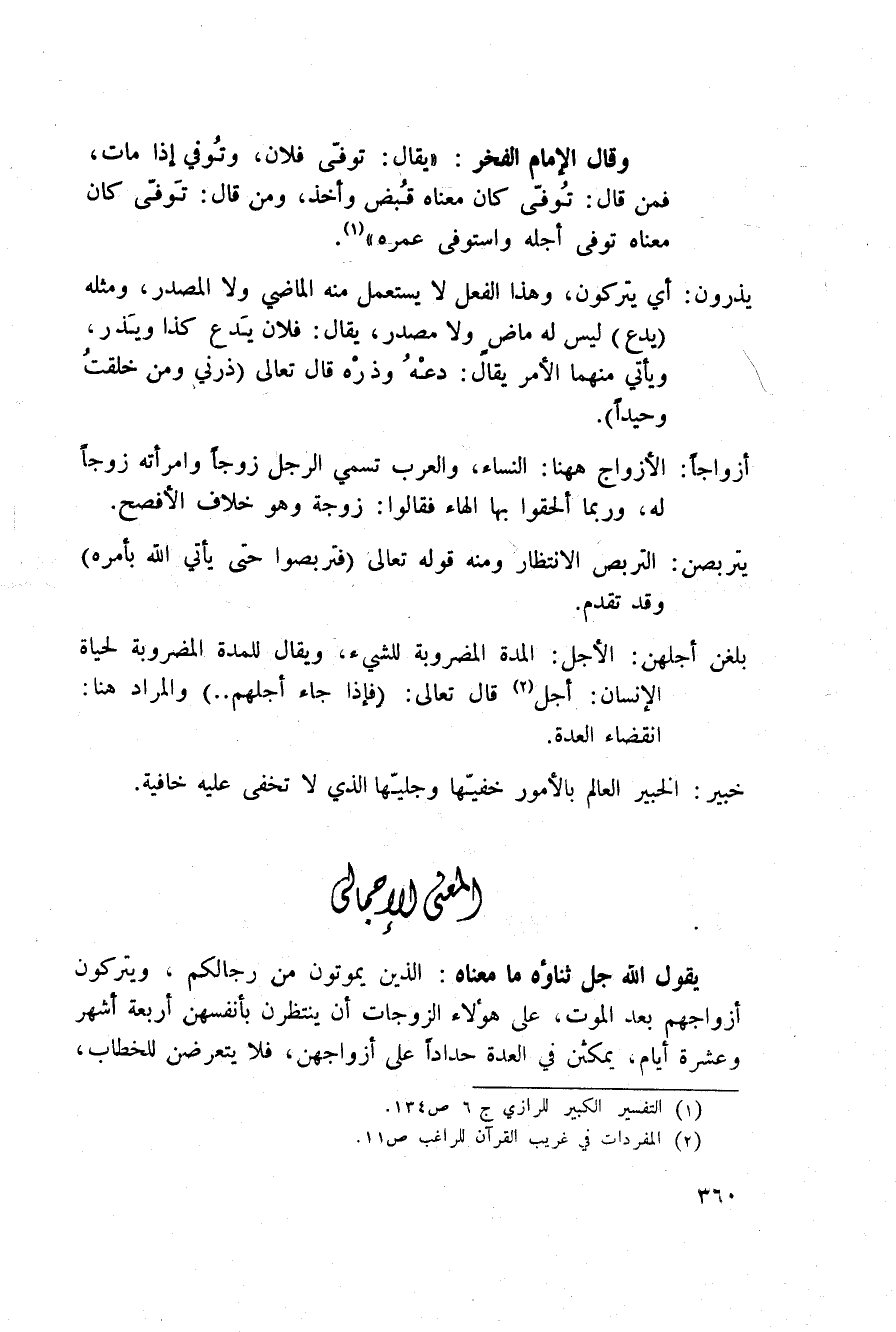 وقال الإمام الفخر : «يقال: توفّى فلان، وتُوفي إذا مات،
فمن قال: تُوفّى كان معناه قُبض وأخذ، ومن قال: تَوفّى كان
معناه توفى أجله واستوفى عمره»(١).
يذرون: أي يتركون، وهذا الفعل لا يستعمل منه الماضي ولا المصدر، ومثله
(يدع) ليس له ماضٍ ولا مصدر، يقال: فلان يَدع كذا ويَذر،
ويأتي منهما الأمر يقال: دعْهُ وذرْه قال تعالى (ذرني ومن خلقتُ
وحيداً).
أزواجاً: الأزواج ههنا: النساء، والعرب تسمي الرجل زوجاً وامرأته زوجاً
له، وربما ألحقوا بها الهاء فقالوا: زوجة وهو خلاف الأفصح.
يتربصن: التربص الانتظار ومنه قوله تعالى (فتربصوا حتى يأتي الله بأمره)
وقد تقدم.
بلغن أجلهن: الأجل: المدة المضروبة للشيء، ويقال للمدة المضروبة لحياة
الإنسان: أجل(٢) قال تعالى: (فإذا جاء أجلهم..) والمراد هنا:
انقضاء العدة.
خبير: الخبير العالم بالأمور خفيّها وجليّها الذي لا تخفى عليه خافية.
المعنى الإجمالي
يقول الله جل ثناؤه ما معناه : الذين يموتون من رجالكم ، ويتركون
أزواجهم بعد الموت، على هؤلاء الزوجات أن ينتظرن بأنفسهن أربعة أشهر
وعشرة أيام، يمكثن في العدة حداداً على أزواجهن، فلا يتعرضن للخطاب،
(١) التفسير الكبير للرازي ج ٦ ص١٣٤.
(٢) المفردات في غريب القرآن للراغب ص١١.
٣٦٠